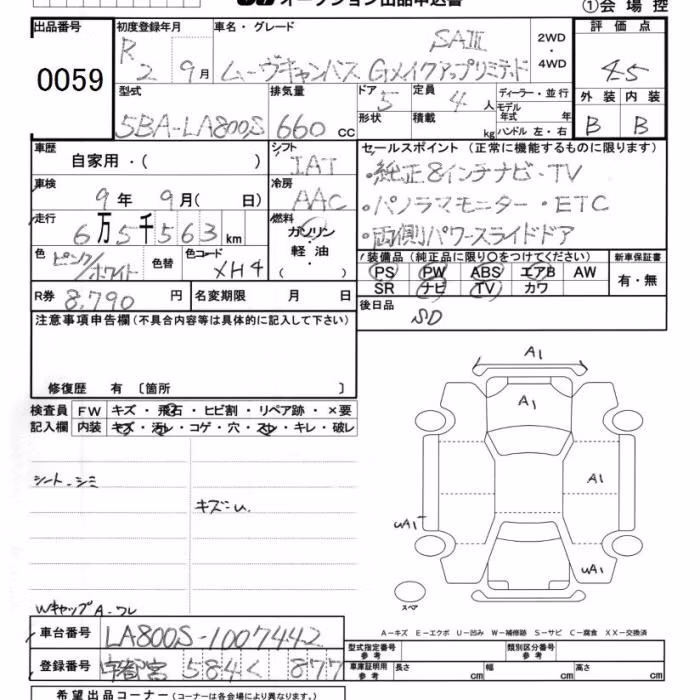 オークション出品申込書 ①会場控
出品番号 初度登録年月 車名・グレード 評価点
0059 R 2 9月 ムーヴキャンバス Gメイクアップリミテッド SAⅢ 2WD ・ 4WD 4.5
型式 排気量 ドア 定員 ディーラー・並行 外装 内装
5BA-LA800S 660 cc 5 4人 モデル年式 年 B B
形状 積載 kg ハンドル 左・右
車歴 シフト セールスポイント (正常に機能するものに限ります)
自家用・( ) IAT ・純正8インチナビ・TV
車検 9年 9月( 日) 冷房 AAC ・パノラマモニター・ETC
走行 6万5千563km 燃料 ガソリン・軽油・( ) ・両側パワースライドドア
色 ピンク/ホワイト 色替 色コード XH4 装備品 (純正品に限り〇をつけてください) 新車保証書
PS PW ABS エアB AW 有・無
SR ナビ TV カワ
R券 8,790円 名変期限 月 日 後日品
SD
注意事項申告欄(不具合内容等は具体的に記入して下さい)
修復歴 有 〔箇所 〕
検査員 FW キズ・飛石・ヒビ割・リペア跡・×要
記入欄 内装 キズ・汚レ・コゲ・穴・スレ・キレ・破レ
A1
A1
シート・シミ
A1
キズ・U.
uA1
uA1
スペア
WキャップA・ワレ
A-キズ E-エクボ U-凹み W-補修跡 S-サビ C-腐食 XX-交換済
車台番号 LA800S-1007442 型式指定番号 参考 類別区分番号 参考
登録番号 宇都宮 584 く 877 車庫証明用 参考 長さ cm 幅 cm 高さ cm
希望出品コーナー(コーナーは各会場により異なります。)